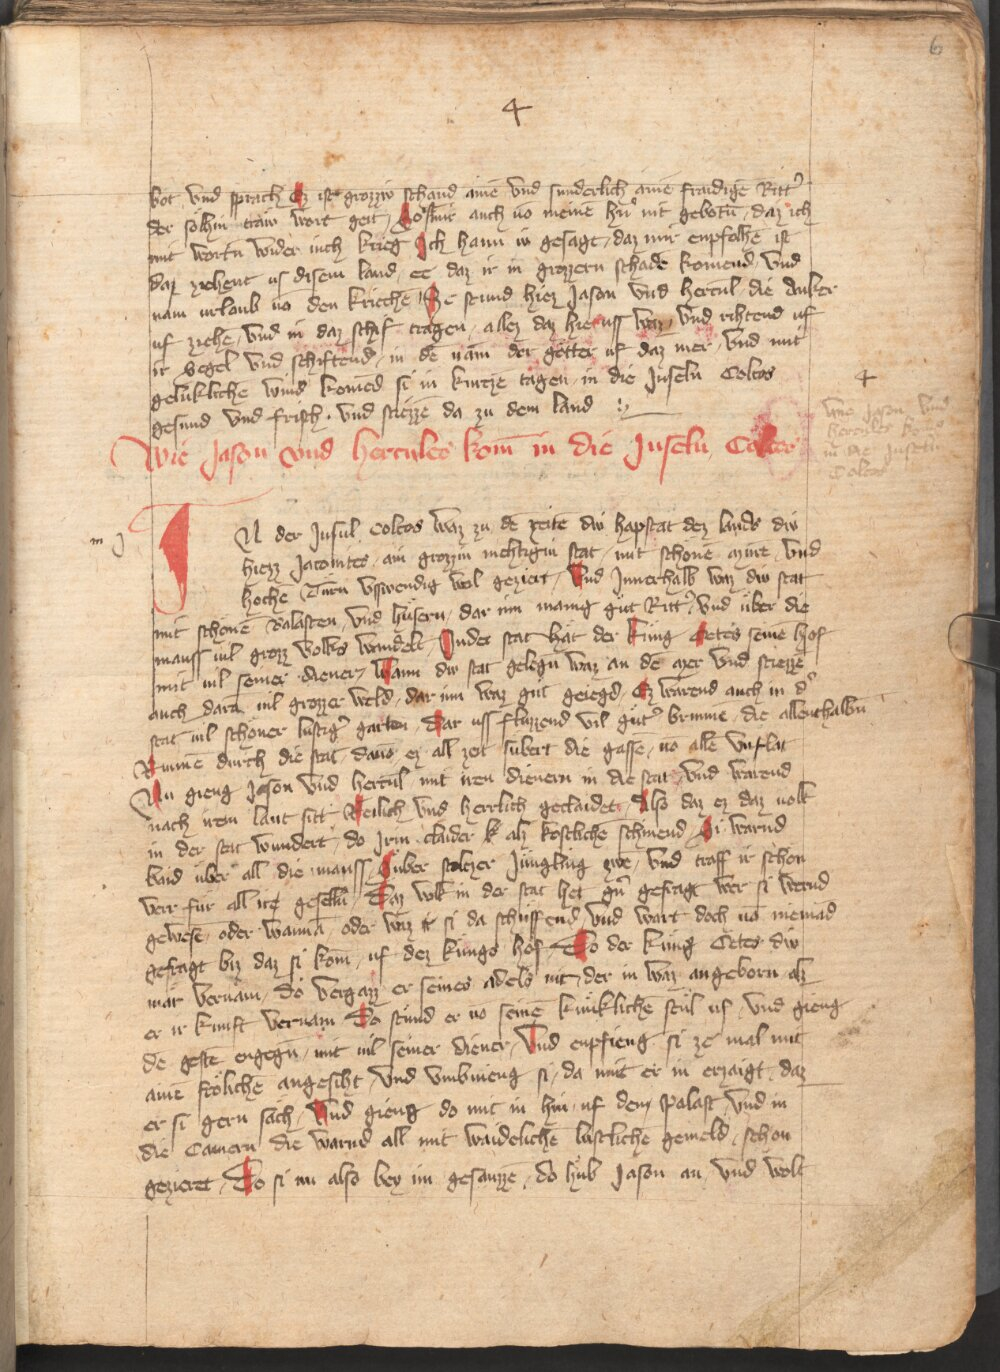 6
4
bot und sprach Ez ist grozziv schand aine und sunderlich aine fraidige Ritt'
der sölhin traw wort geit / So ist mir auch vo meine hn' nit gebotn / daz ich
mit wortn wider iuch krieg Ich hann iv gesagt / daz mir enpfolhe ist
daz ziehent us disem land / ee daz ir in grozzern schade komend / und
nam urlaub vo den kriechē / Ze stund hiez Jason und hercul die Anker
uf ziehē / und in daz schif tragen / allez daz hie uss waz / und rihtend uf
ir Segel und schiftend / in dē nām der götter uf daz mer / und mit
gelükliche wind komēd si in kurczē tagen / in die Jnseln Colcos
gesund und frisch / und stiezzē da zu dem land
4
Wie Jason und hercules kom in die Jnseln Colcos
Wie Jason und
hercules kom
in die Jnseln
Colcos
N der Jnsul Colcos waz zu dē zeitē div hapstat dez lands div
hiezz Jacomites / ain grozzin mehtigin stat / mit schönē / und
hoche Turn usswendig wol geziert / Und Jnnerhalb waz div stat
mit schonē Balasten / und hüsern / dar inn manig gůt Ritt' / und über die
mauss vil grozz volks wandelt / Jn der stat hāt der küng Oetes seinē hof
mit vil seiner diener / Wann div stat gelegn waz an dē mer und stiezze
auch dara vil grozzer weld / dar inn waz gůt geiegd / Ez wārend auch in d'
stat vil schöner lustig' garten / Dar uss fluzzend vil gůt' brunnē / die allenthalbn
Runnē durch die stat / davo ez all zeit subert die gassē / vo allē unflat
Nu gieng Jason und hercul mit iren dienern in die stat / und warend
nach irem lant sitt Reilich und herrlich geclaidet / Also daz ez daz volk
in der stat wundert / do Jrin claider als kostliche schinend / Si warnd
baid über all die mauss / Süber stolczer Jüngling zwe / und traff ir schon
verr für all ire geselln / Daz volk in der stat het gn' gefragt wer si wernd
gewesē / oder wannā / oder waz si da schüffend / und wart doch vo niemād
gefragt biz daz si kom / uf dez küngs hof / Do der küng Oetes div
mār vernam / do vergazz er seines adels nit / der in waz angeborn als
er ir kunft vernam Do stůnd er vo seinē künklichē stůl uf / und gieng
dē gestē engegn / mit vil seiner diener / Und enpfieng si ze mal mit
ainē frölichē angesiht / und umbvieng si / da mit er in erzaigt / daz
er si gern sāch / Und gieng do mit in hin uf den palast / und in
die Camern die warnd all mit waidelichē lustlichē gemeld / schon
gezieret / Do si nu also bey im gesauzze / do hůb Jason an / und wolt